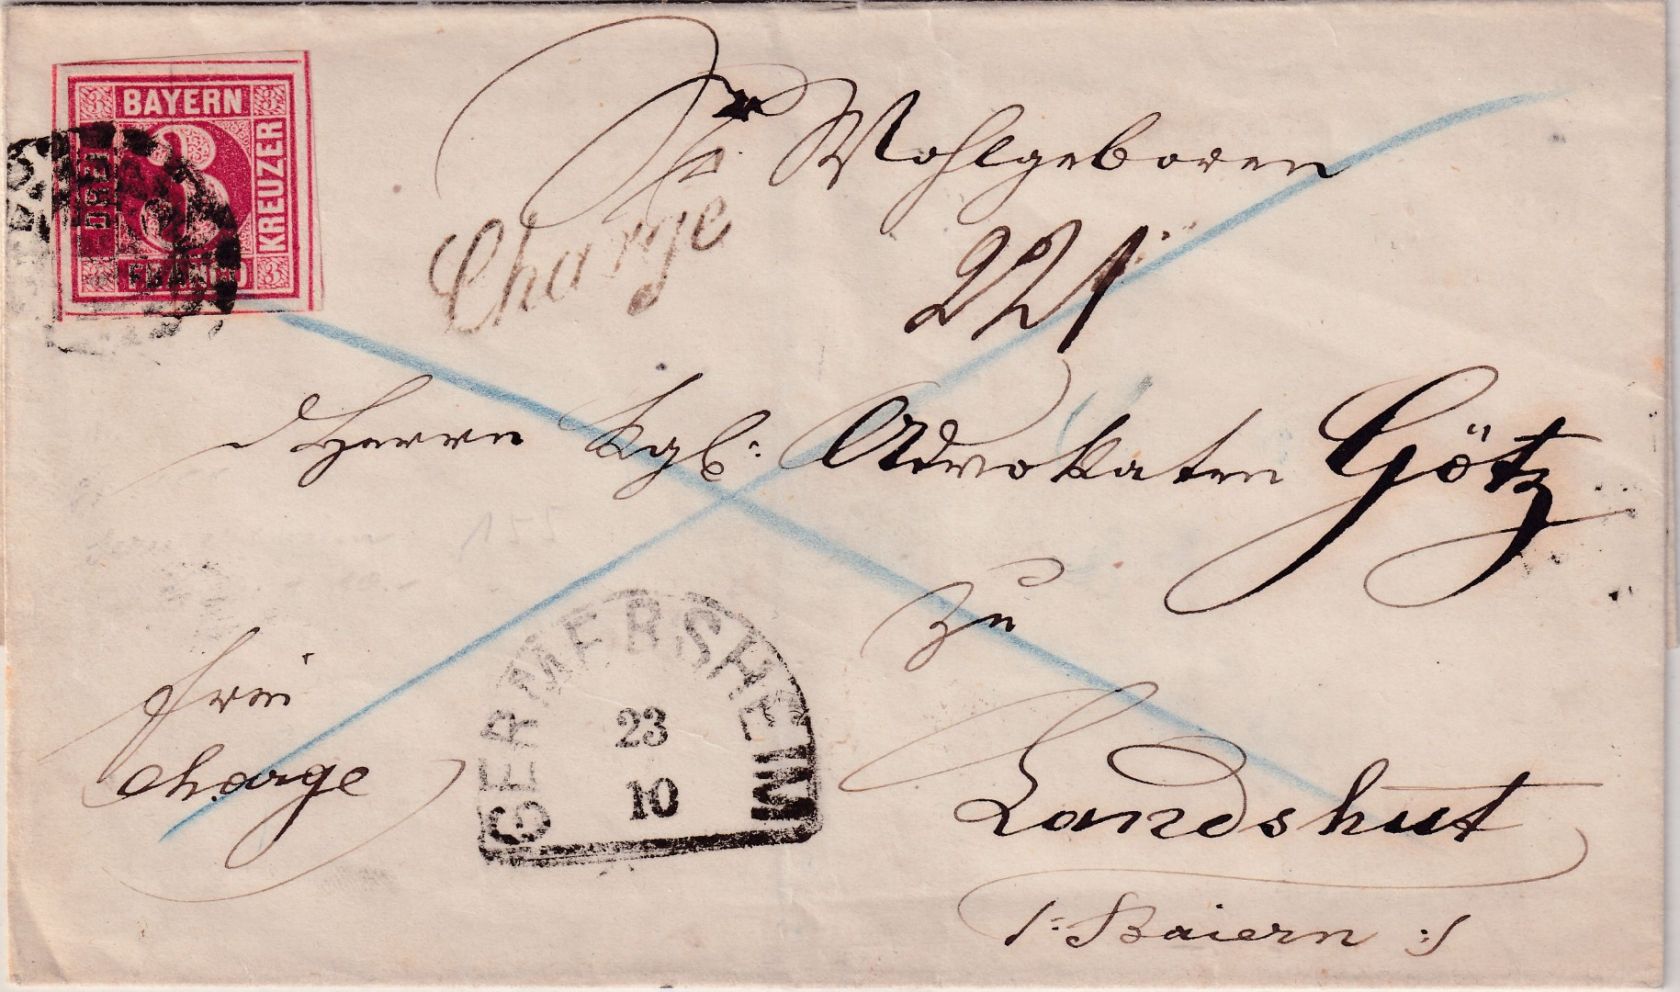 3 BAYERN 3
DREI 3 KREUZER
3 FRANCO 3
Sr. Wohlgeboren
Charge
221
Herrn Kgl: Advokaten Götz
zu
frei
charge
GERMERSHEIM
23
10
Landshut
/: Baiern :/